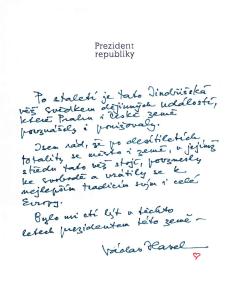 Prezident
republiky
Po staletí je tato Jindřišská
věž svědkem dějinných událostí,
které Prahu i české země
povznášely i ponižovaly.
Jsem rád, že po desítiletích
totality se město i země, v jejímž
středu tato věž stojí, povznesly
ke svobodě a vrátily se k
nejlepším tradicím svým i celé
Evropy.
Bylo mi ctí být v těchto
letech prezidentem této země –
Václav Havel